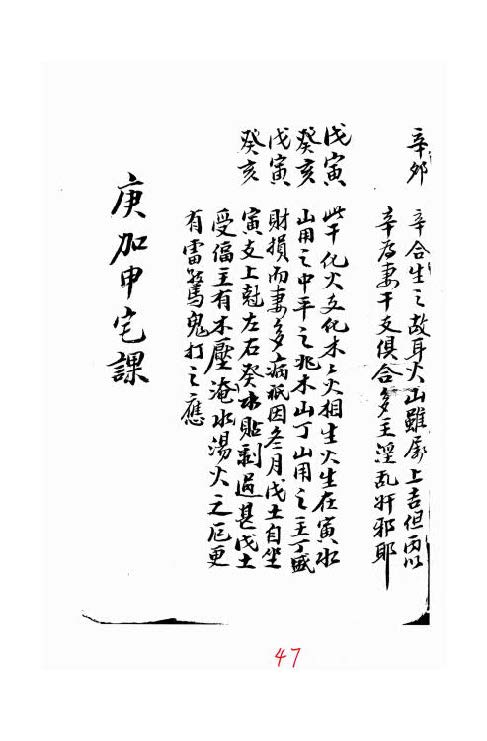 辛卯　辛合生之故耳火山雖屬上吉但丙以
辛為妻干支俱合多主淫乱奸邪耶
戊寅　此干化火支化木木火相生火生在寅水
癸亥　山用之中平之兆木山丁山用之主丁盛
戊寅　財損而妻多病祇因冬月戊土自坐
癸亥　寅支上尅左右癸水貼剥過甚戊土
受傷主有木壓淹水湯火之厄更
有雷驚鬼打之應
庚加申宅課
47